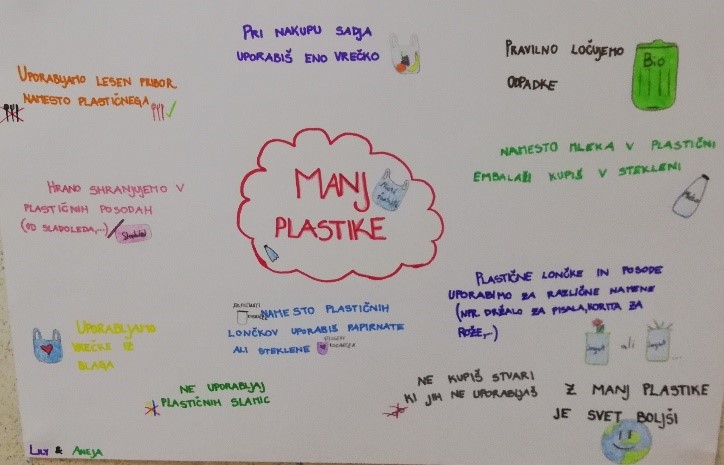 PRI NAKUPU SADJA
UPORABIŠ ENO VREČKO
PRAVILNO LOČUJEMO
ODPADKE
Bio
UPORABLJAMO LESEN PRIBOR
NAMESTO PLASTIČNEGA
NAMESTO MLEKA V PLASTIČNI
EMBALAŽI KUPIŠ V STEKLENI
HRANO SHRANJUJEMO V
PLASTIČNIH POSODAH
(OD SLADOLEDA,...)
Sladoled
MANJ
PLASTIKE
PLASTIČNE LONČKE IN POSODE
UPORABIMO ZA RAZLIČNE NAMENE
(NPR. DRŽALO ZA PISALA, KORITA ZA
ROŽE,...)
ali
UPORABLJAMO
VREČKE IZ
BLAGA
NAMESTO PLASTIČNIH
LONČKOV UPORABIŠ PAPIRNATE
ALI STEKLENE
NE UPORABLJAJ
PLASTIČNIH SLAMIC
NE KUPIŠ STVARI
KI JIH NE UPORABLJAŠ
Z MANJ PLASTIKE
JE SVET BOLJŠI
LILY & ANEJA